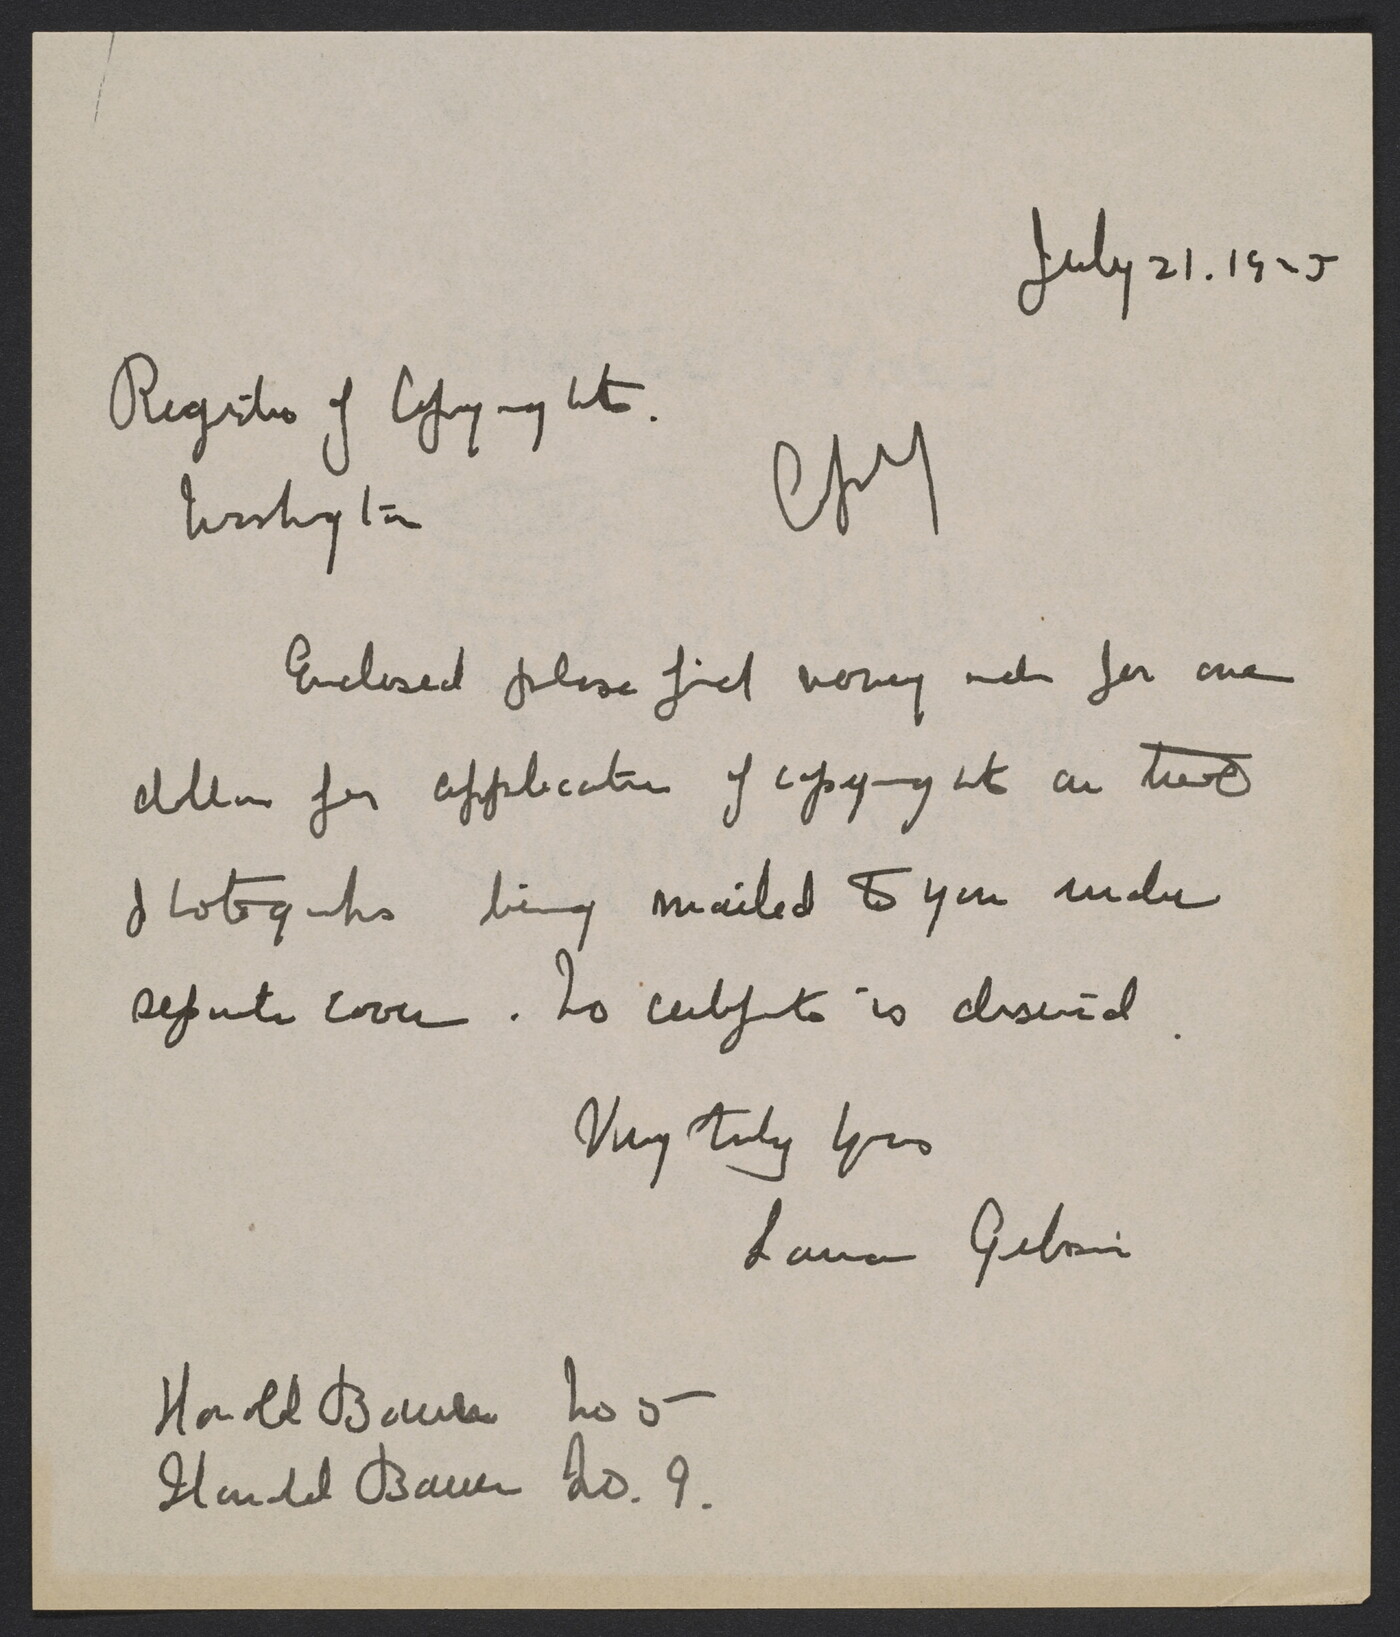 July 21. 1925
Register of Copyrights.
Washington
Copy
Enclosed please find money order for one
dollar for application of copyright on two
photographs being mailed to you under
separate cover. No certificate is desired.
Very truly yours
Laura Gilpin
Harold Bauer No 5
Harold Bauer No. 9.